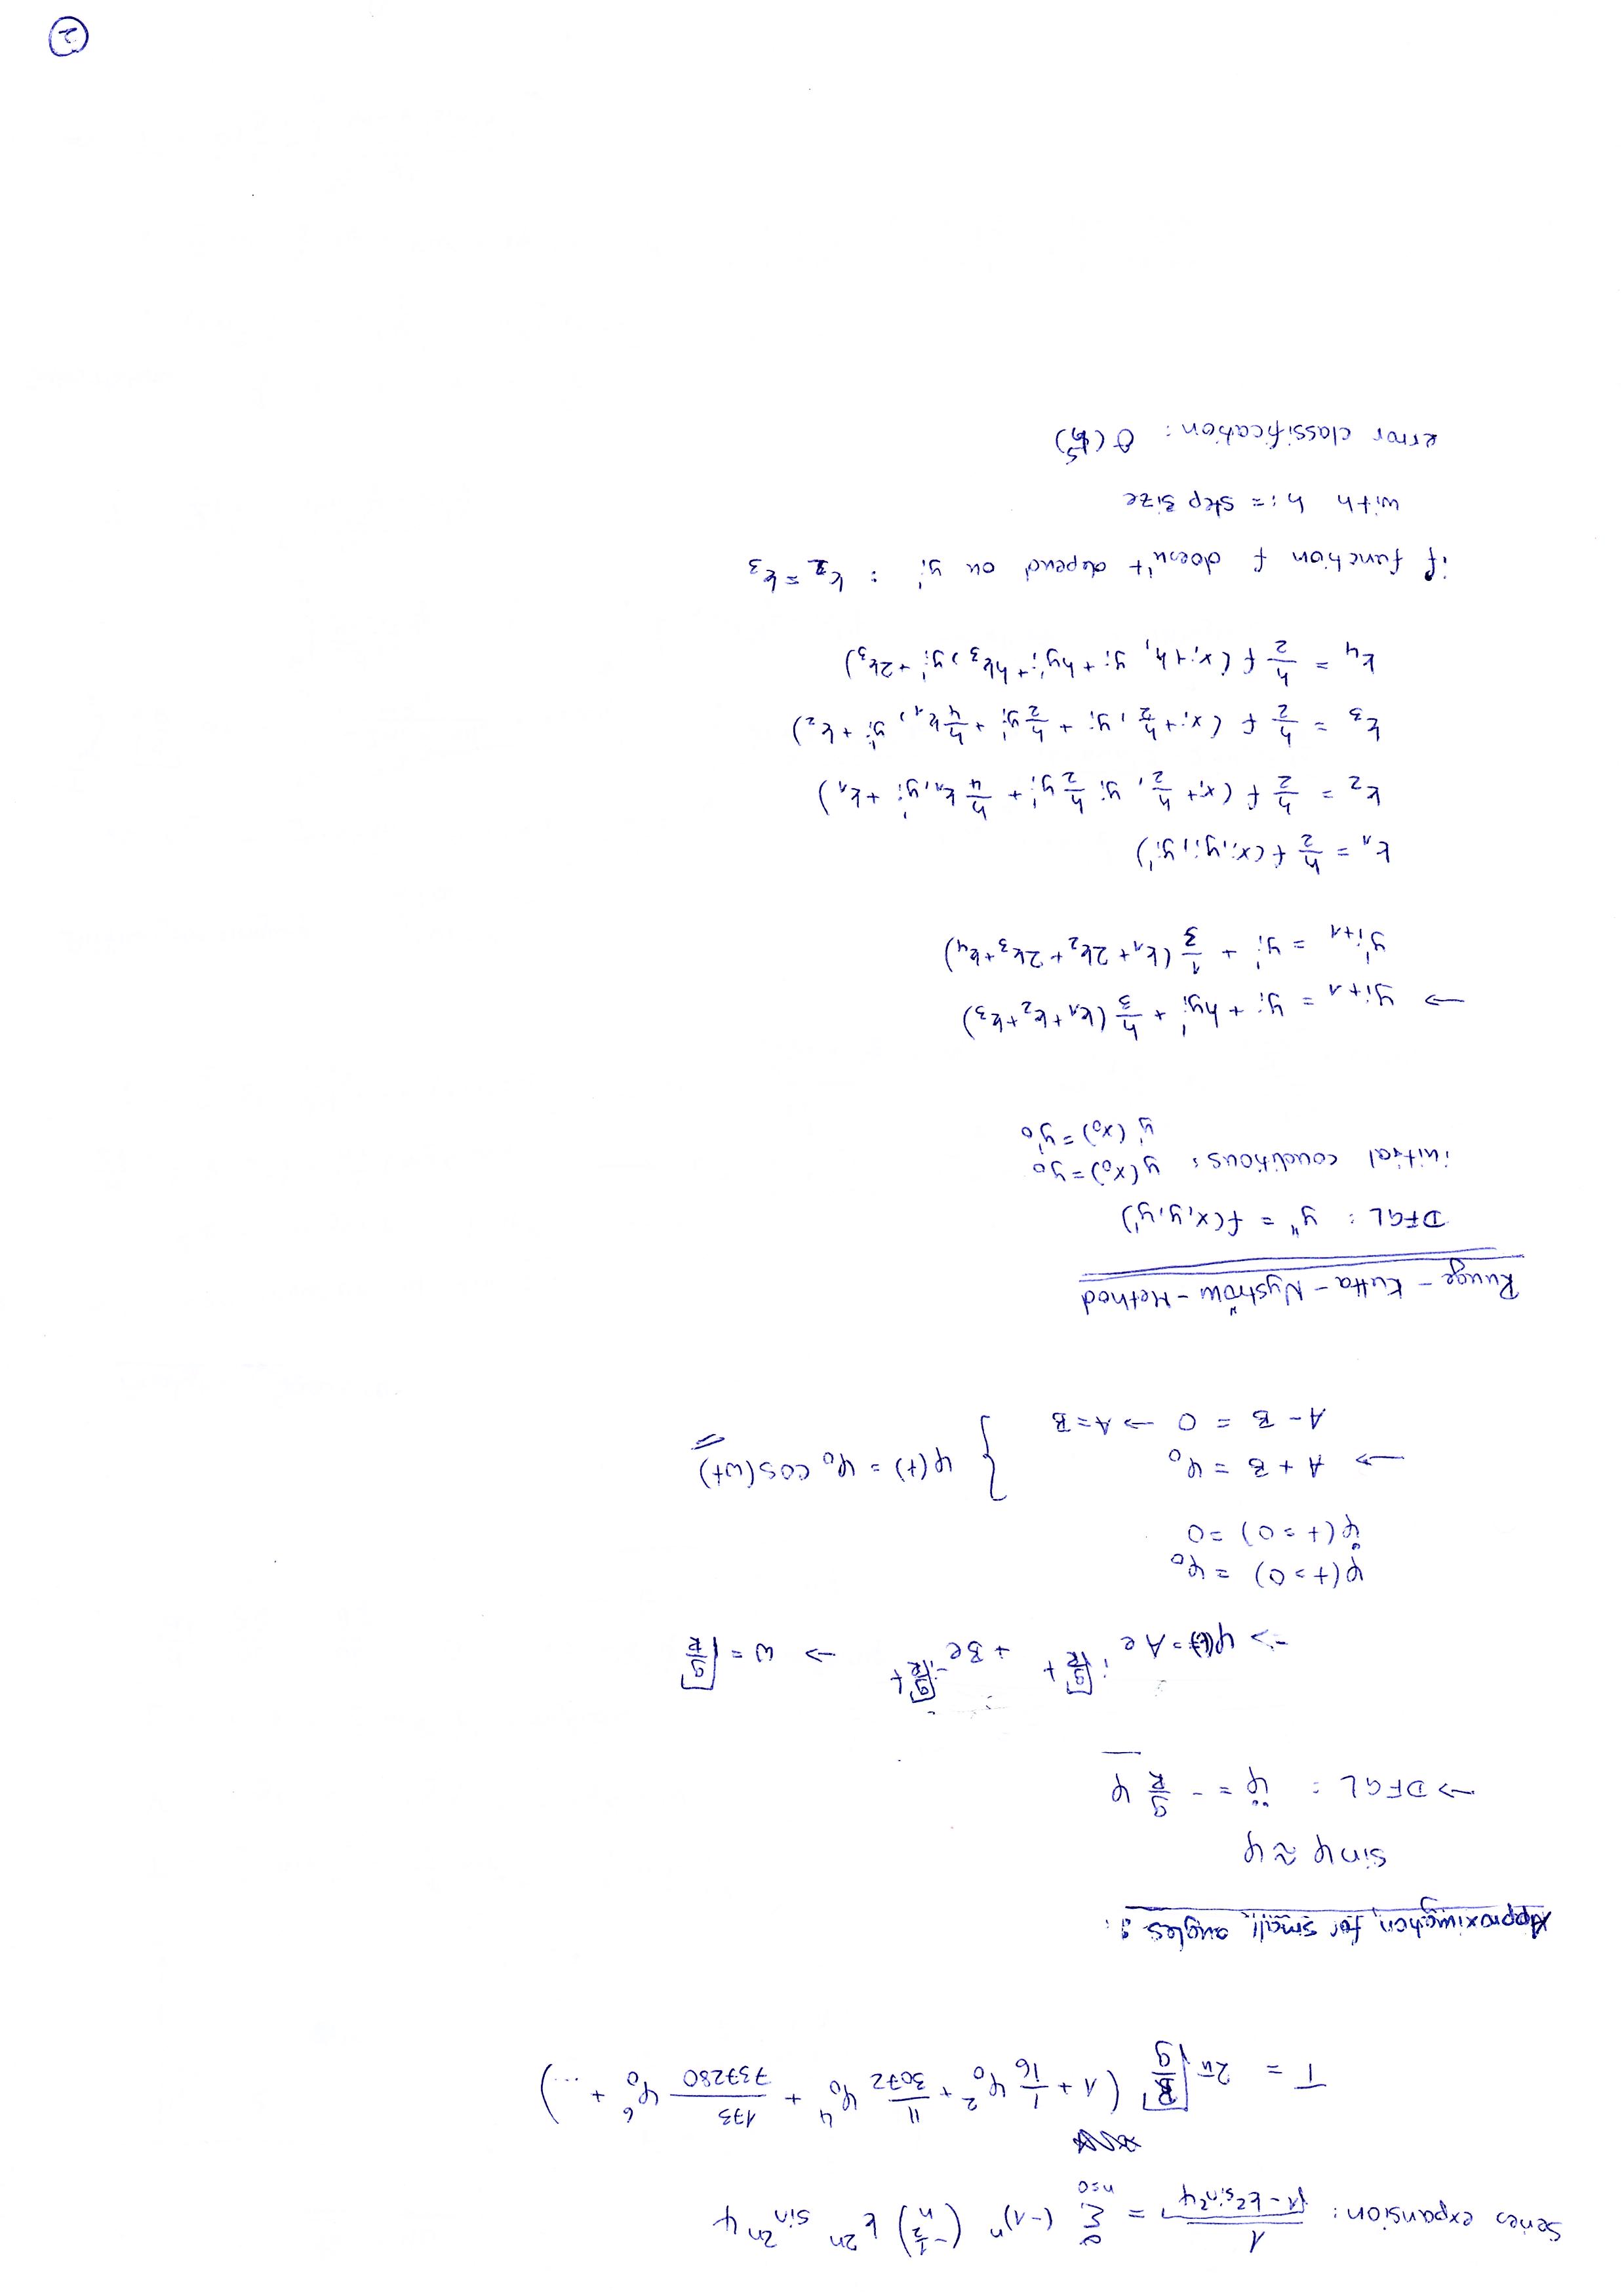 Series expansion: 1/√(1-k²sin²ψ) = Σ_{n=0}^{∞} (-1)^n (-1/2 n) k^{2n} sin^{2n} ψ
T = 2π √(R/g) (1 + 1/16 φ₀² + 11/3072 φ₀⁴ + 173/737280 φ₀⁶ + ...)
Approximation for small angles:
sinφ ≈ φ
→ DFGL: φ̈ = - g/R φ
→ φ(t) = A e^{i√(g/R) t} + B e^{-i√(g/R) t} → ω = √(g/R)
φ(t=0) = φ₀
φ̇(t=0) = 0
→ A + B = φ₀
A - B = 0 → A = B } φ(t) = φ₀ cos(ωt)
Runge-Kutta-Nyström-Method
DFGL: y'' = f(x,y,y')
initial conditions: y(x₀) = y₀
y'(x₀) = y'₀
→ y_{i+1} = y_i + hy'_i + h/3 (k₁+k₂+k₃)
y'_{i+1} = y'_i + 1/3 (k₁+2k₂+2k₃+k₄)
k₁ = h/2 f(x_i, y_i, y'_i)
k₂ = h/2 f(x_i + h/2, y_i h/2 y'_i + h/4 k₁, y'_i + k₁)
k₃ = h/2 f(x_i + h/2, y_i + h/2 y'_i + h/4 k₁, y'_i + k₂)
k₄ = h/2 f(x_i+h, y_i + hy'_i + hk₃, y'_i + 2k₃)
if function f doesn't depend on y'_i : k₂ = k₃
with h := step size
error classification: O(h⁵)
2